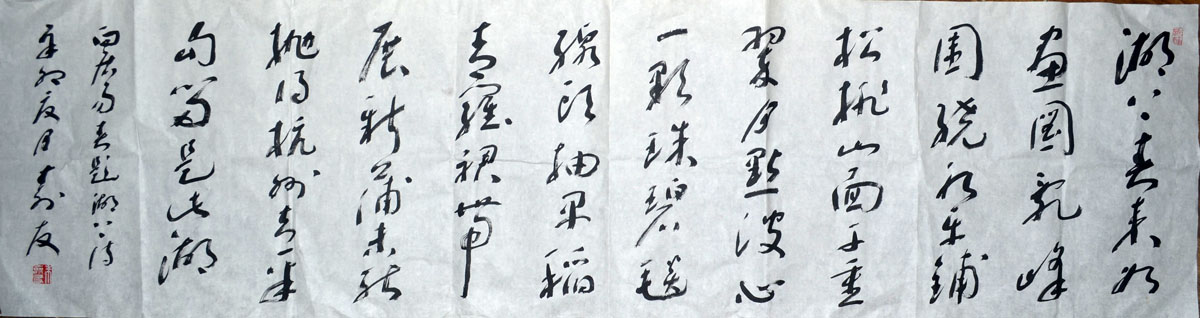 湖上春来似
畫圖乱峰
圍繞水平鋪
松排山面千重
翠月點波心
一颗珠碧毯
線头抽早稻
青羅裙帶
展新蒲未能
抛得杭州去一半
勾留是此湖
白居易春题湖上诗
辛卯夏月